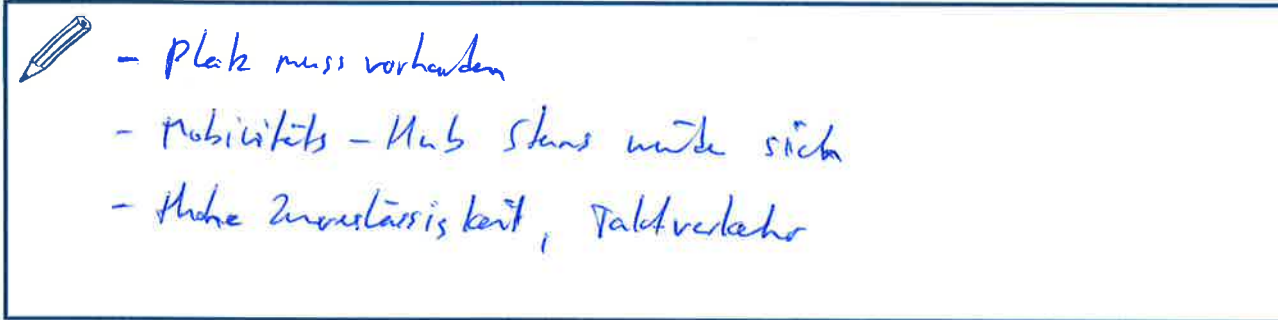 - Platz muss vorhanden
- Mobilitäts-Hub Stans würde sich
- Hohe Zuverlässigkeit, Taktverkehr